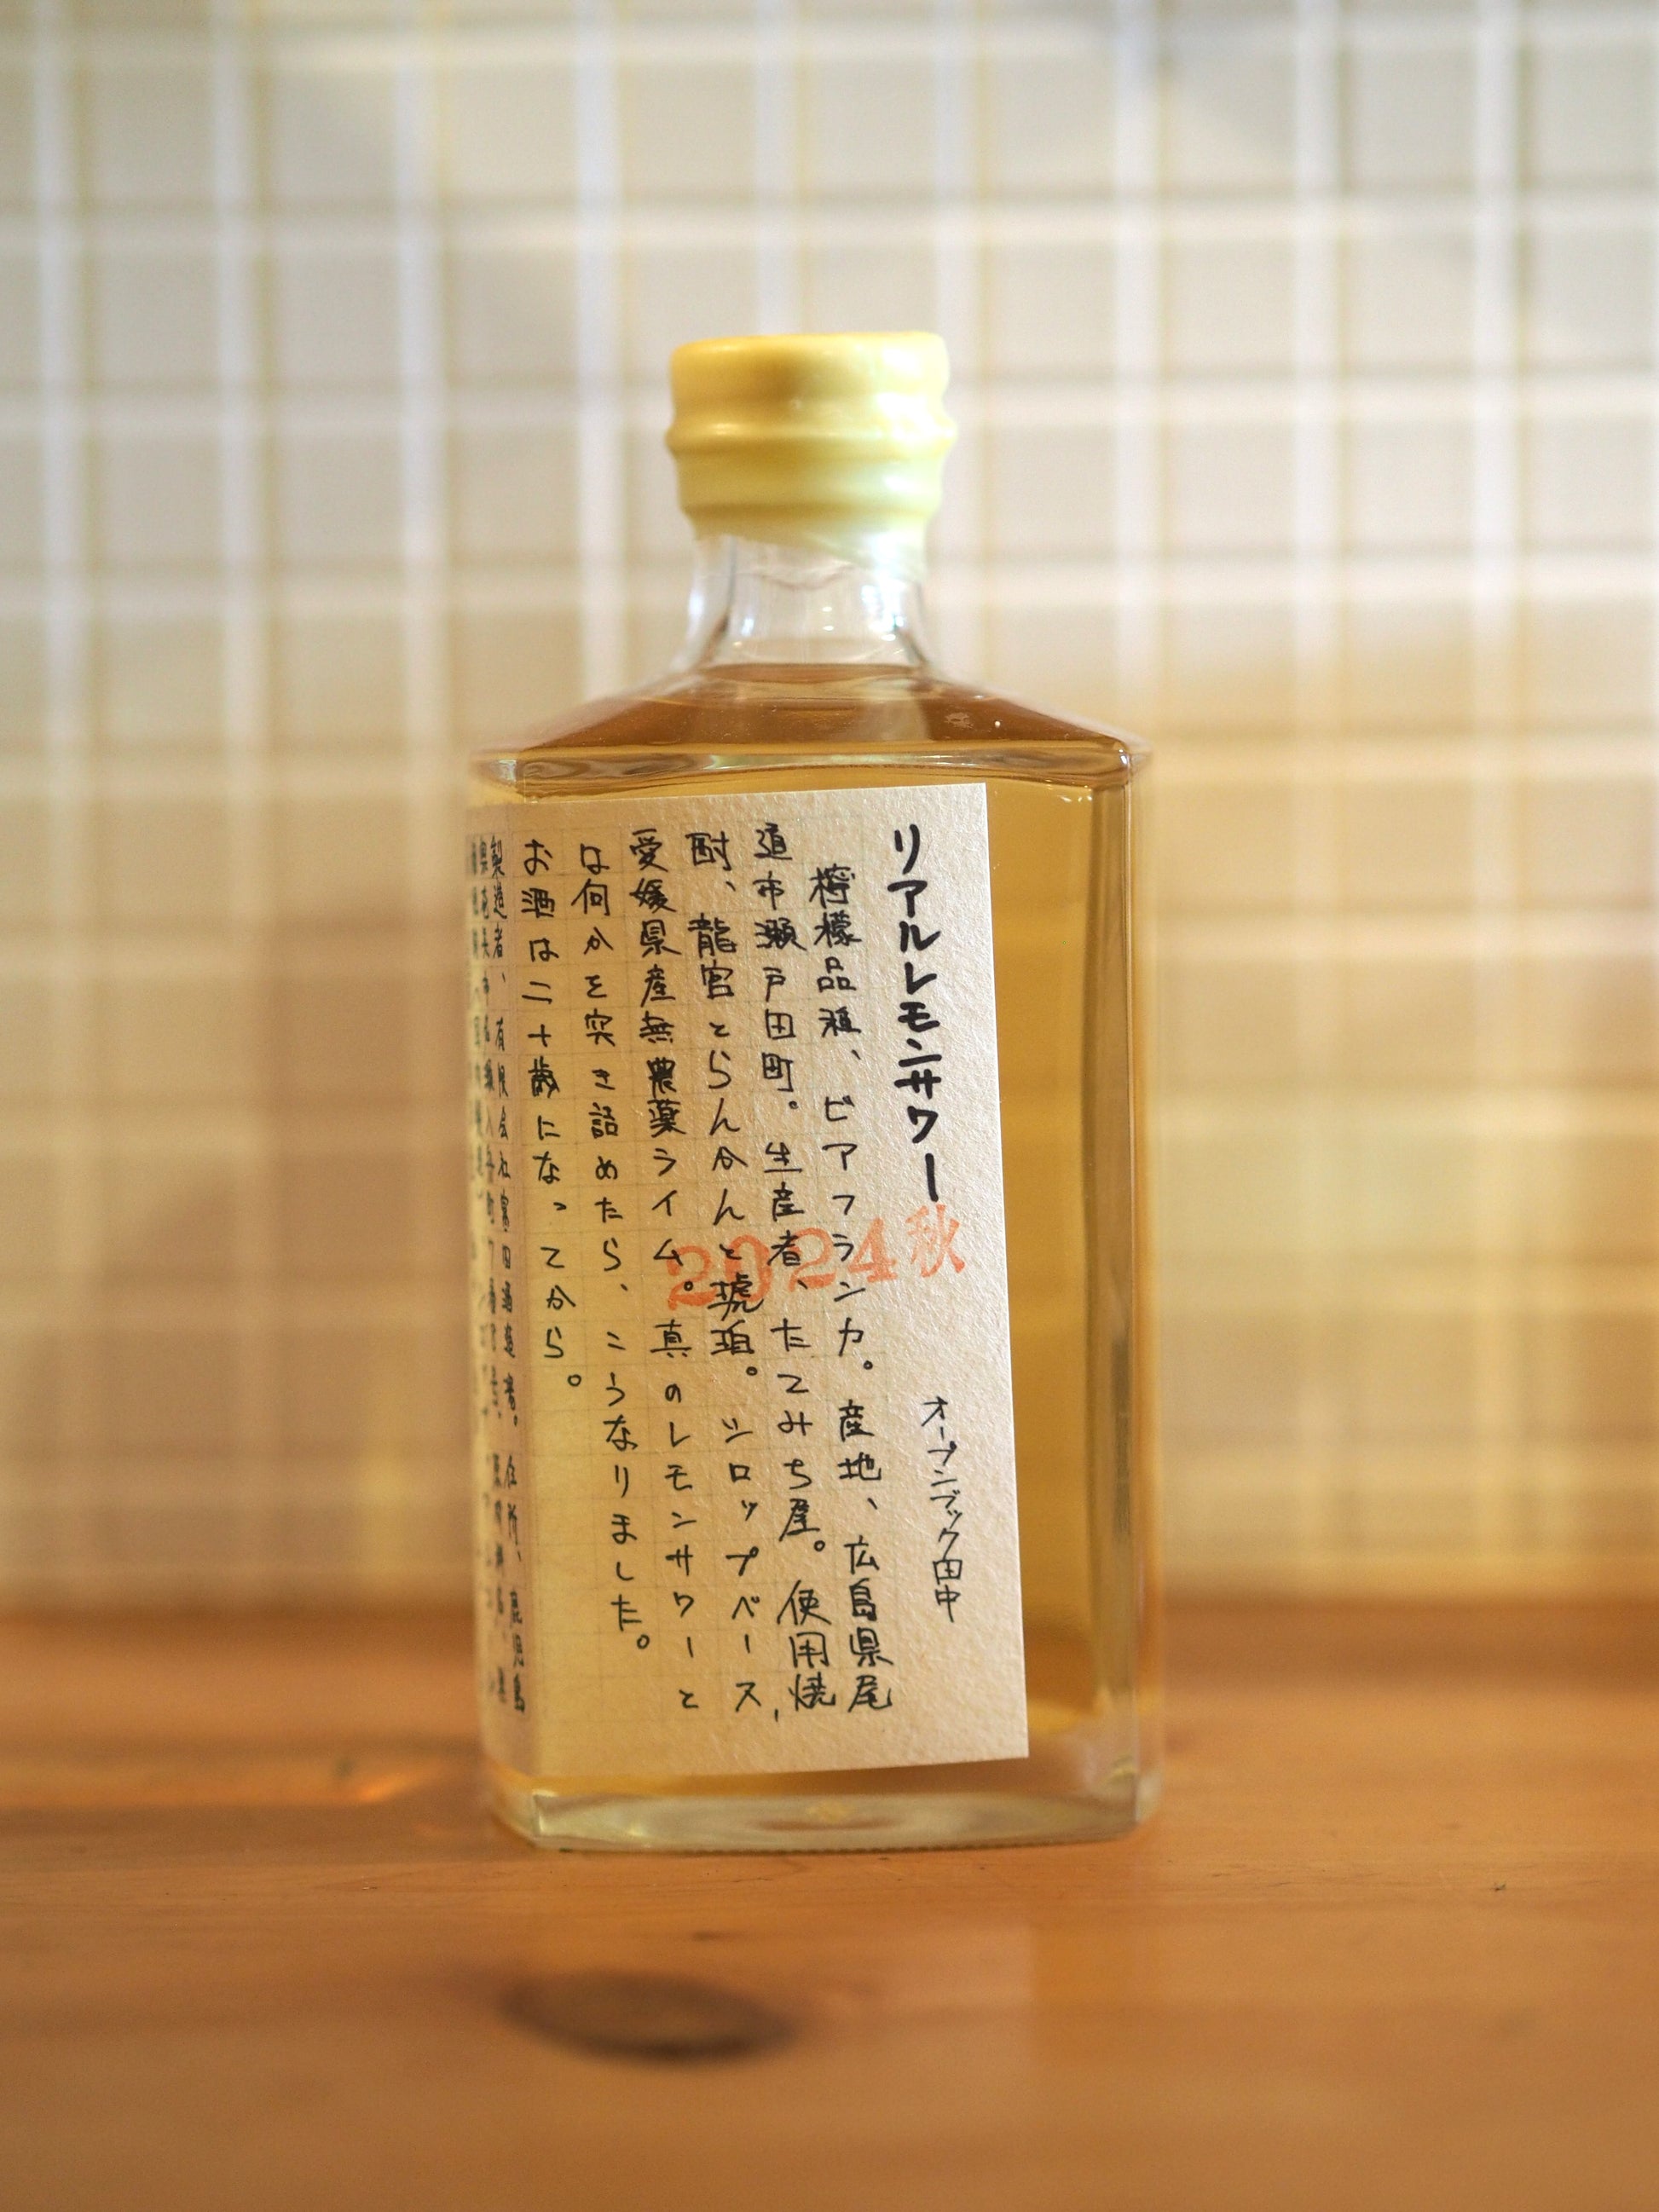 リアルレモンサワー
2024秋
オープンブック田中
檸檬品種、ビアフランカ。産地、広島県尾
道市瀬戸田町。生産者、たてみち屋。使用焼
酎、龍宮とらんかんと琥珀。シロップベース、
愛媛県産無農薬ライム。真のレモンサワーと
は何かを突き詰めたら、こうなりました。
お酒は二十歳になってから。
製造者、有限会社富田酒造場。住所、鹿児島